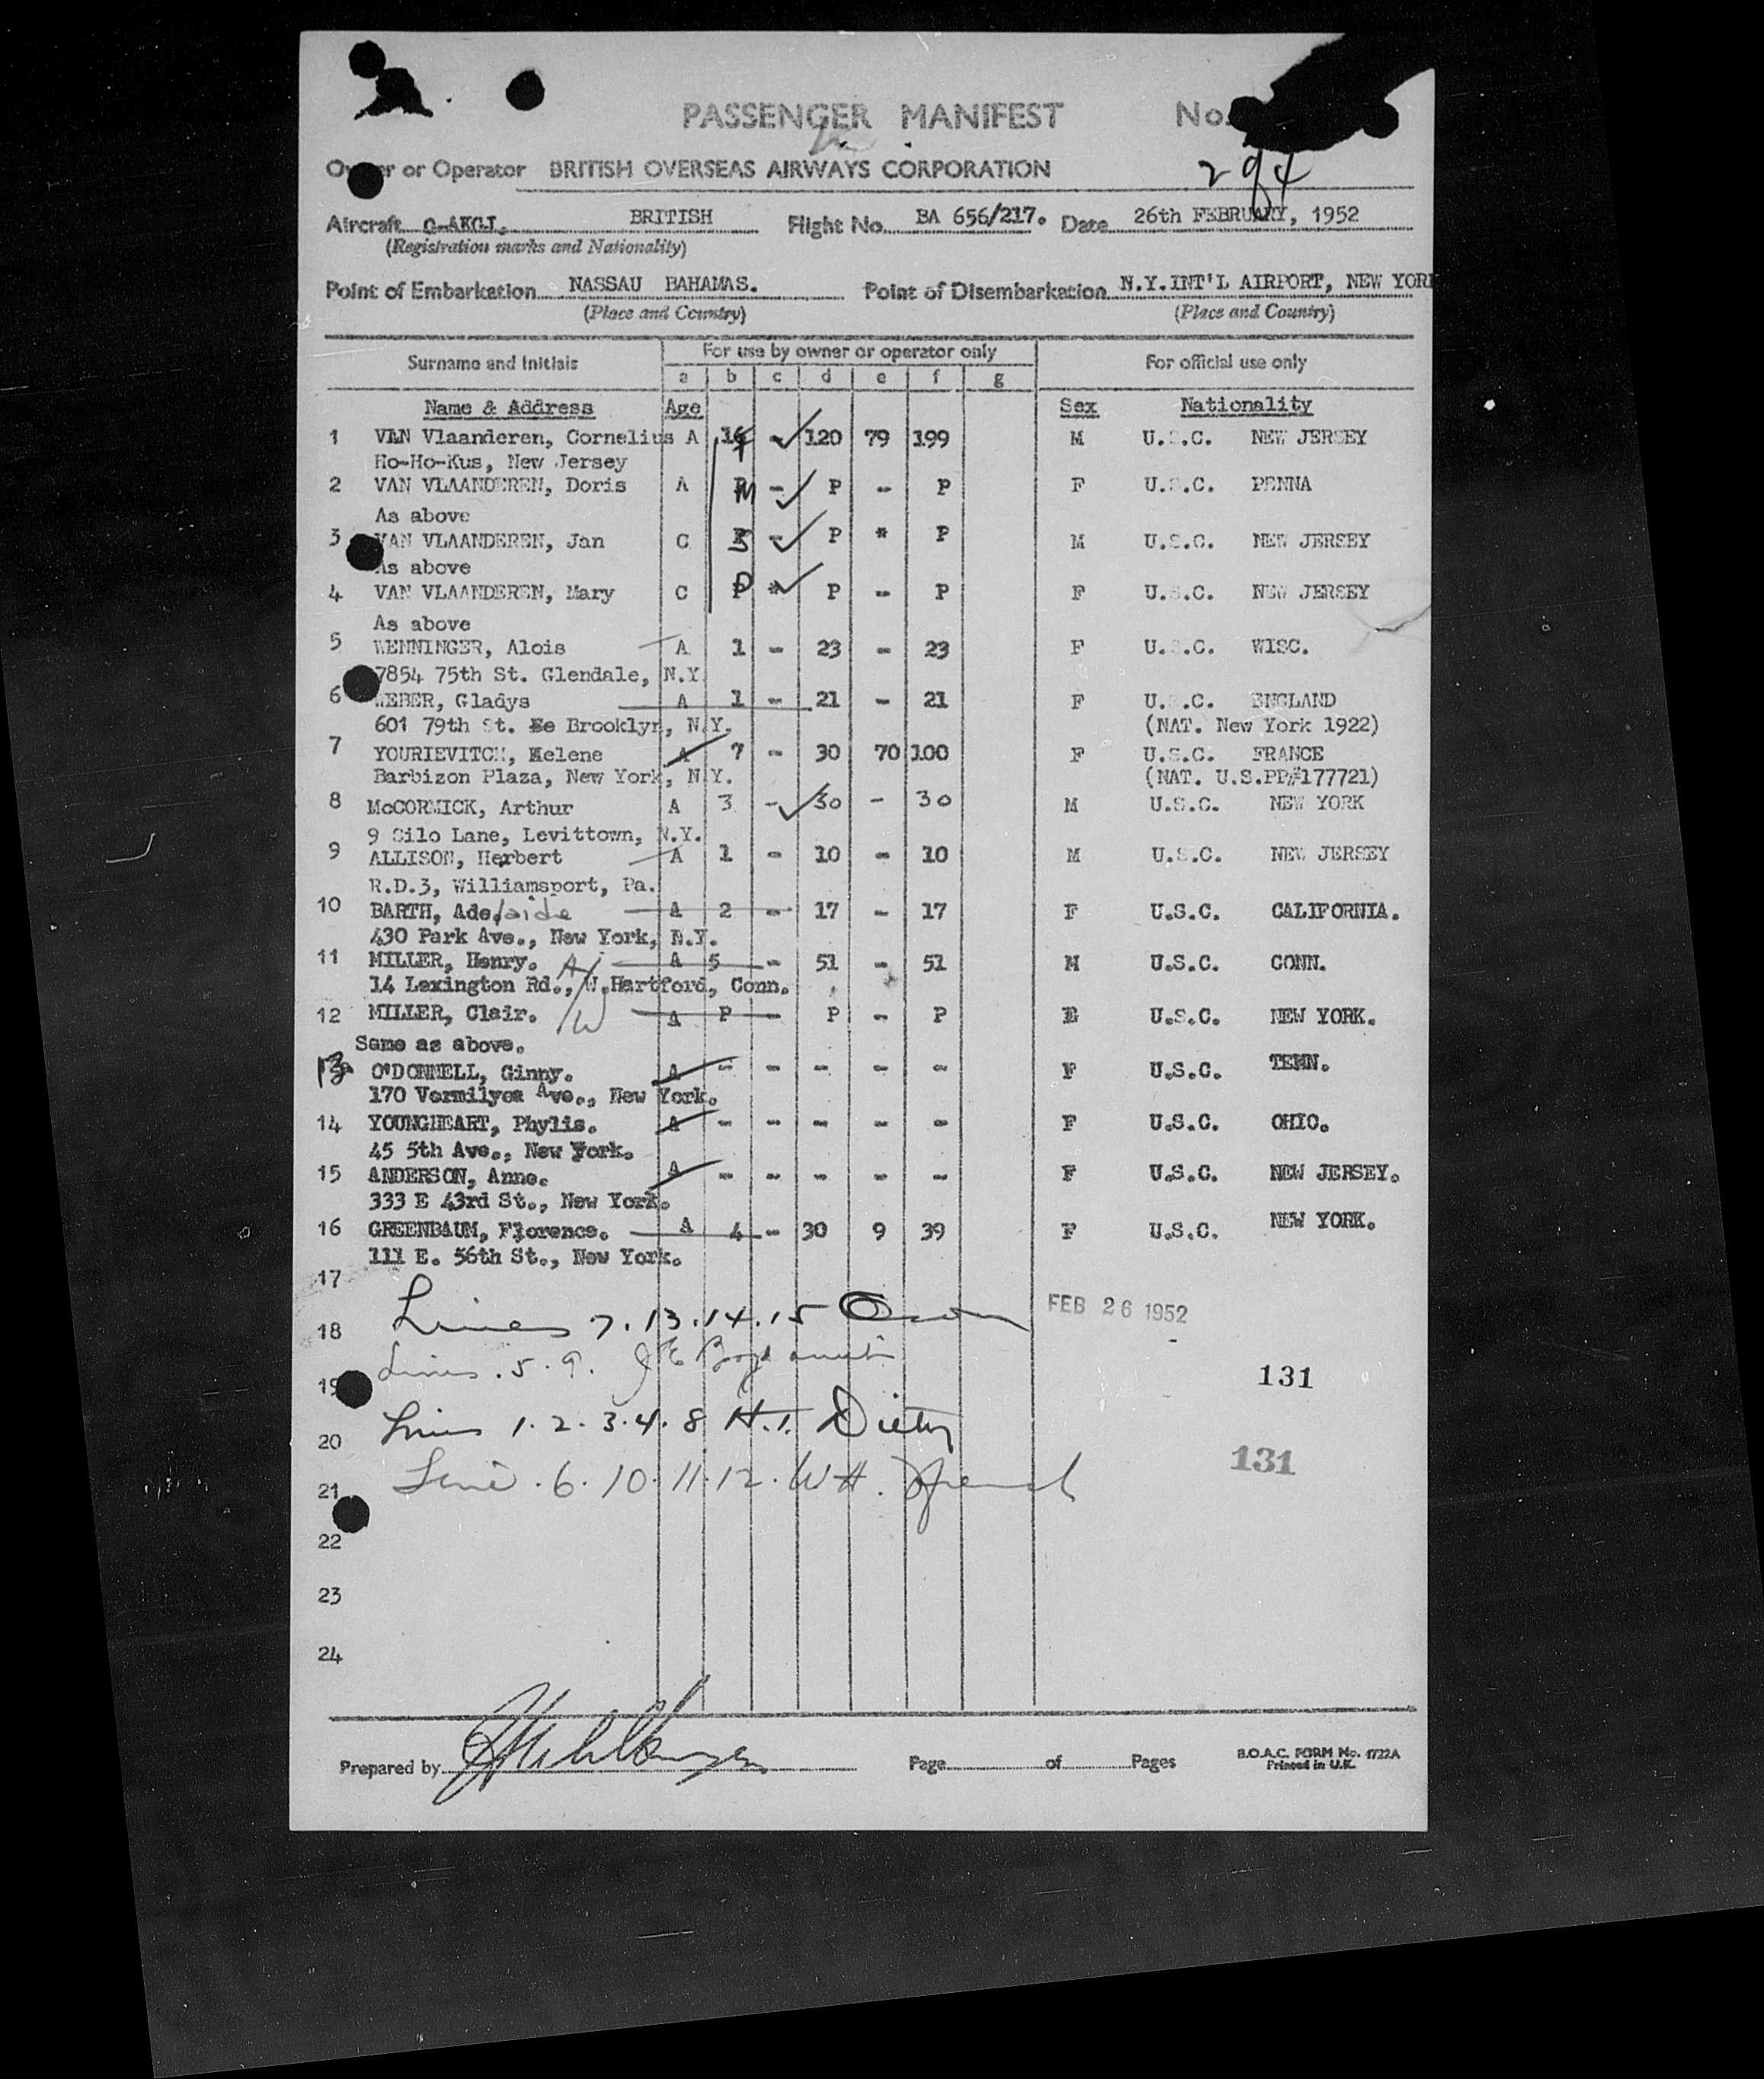 PASSENGER MANIFEST No.
294
Owner or Operator BRITISH OVERSEAS AIRWAYS CORPORATION
Aircraft G-AKGJ. BRITISH Flight No. BA 656/217. Date 26th FEBRUARY, 1952
(Registration marks and Nationality)
Point of Embarkation NASSAU BAHAMAS. Point of Disembarkation N.Y.INT'L AIRPORT, NEW YORK
(Place and Country) (Place and Country)
Surname and Initials For use by owner or operator only For official use only
a b c d e f g
Name & Address Age Sex Nationality
1 VAN Vlaanderen, Cornelius A - 120 79 199 M U.S.C. NEW JERSEY
Ho-Ho-Kus, New Jersey
2 VAN VLAANDEREN, Doris A M - P - P F U.S.C. PENNA
As above
3 VAN VLAANDEREN, Jan C - P * P M U.S.C. NEW JERSEY
As above
4 VAN VLAANDEREN, Mary C P * P - P F U.S.C. NEW JERSEY
As above
5 WENNINGER, Alois A 1 - 23 - 23 F U.S.C. WISC.
7854 75th St. Glendale, N.Y.
6 WEBER, Gladys A 1 - 21 - 21 F U.S.C. ENGLAND
601 79th St. Brooklyn, N.Y. (NAT. New York 1922)
7 YOURIEVITCH, Helene A 7 - 30 70 100 F U.S.C. FRANCE
Barbizon Plaza, New York, N.Y. (NAT. U.S.PP#177721)
8 McCORMICK, Arthur A 3 - 30 - 30 M U.S.C. NEW YORK
9 Silo Lane, Levittown, N.Y.
9 ALLISON, Herbert A 1 - 10 - 10 M U.S.C. NEW JERSEY
R.D.3, Williamsport, Pa.
10 BARTH, Adelaide A 2 - 17 - 17 F U.S.C. CALIFORNIA.
430 Park Ave., New York, N.Y.
11 MILLER, Henry. H/ A 5 - 51 - 51 M U.S.C. CONN.
14 Lexington Rd., W.Hartford, Conn.
12 MILLER, Clair. /W A P - P - P U.S.C. NEW YORK.
Same as above.
13 O'DONNELL, Ginny. A - - - - - F U.S.C. TENN.
170 Vermilyea Ave., New York.
14 YOUNGHEART, Phylis. A - - - - - F U.S.C. OHIO.
45 5th Ave., New York.
15 ANDERSON, Anne. A - - - - - F U.S.C. NEW JERSEY.
333 E 43rd St., New York.
16 GREENBAUM, Florence. A 4 - 30 9 39 F U.S.C. NEW YORK.
111 E. 56th St., New York.
17
Lines 7.13.14.15
FEB 26 1952
18
Lines.5.9.
19 131
Lines 1.2.3.4.8 H.I.
20
131
Line.6.10.11.12.WH.
21
22
23
24
Prepared by Page of Pages B.O.A.C. FORM No. 1722A
Printed in U.K.